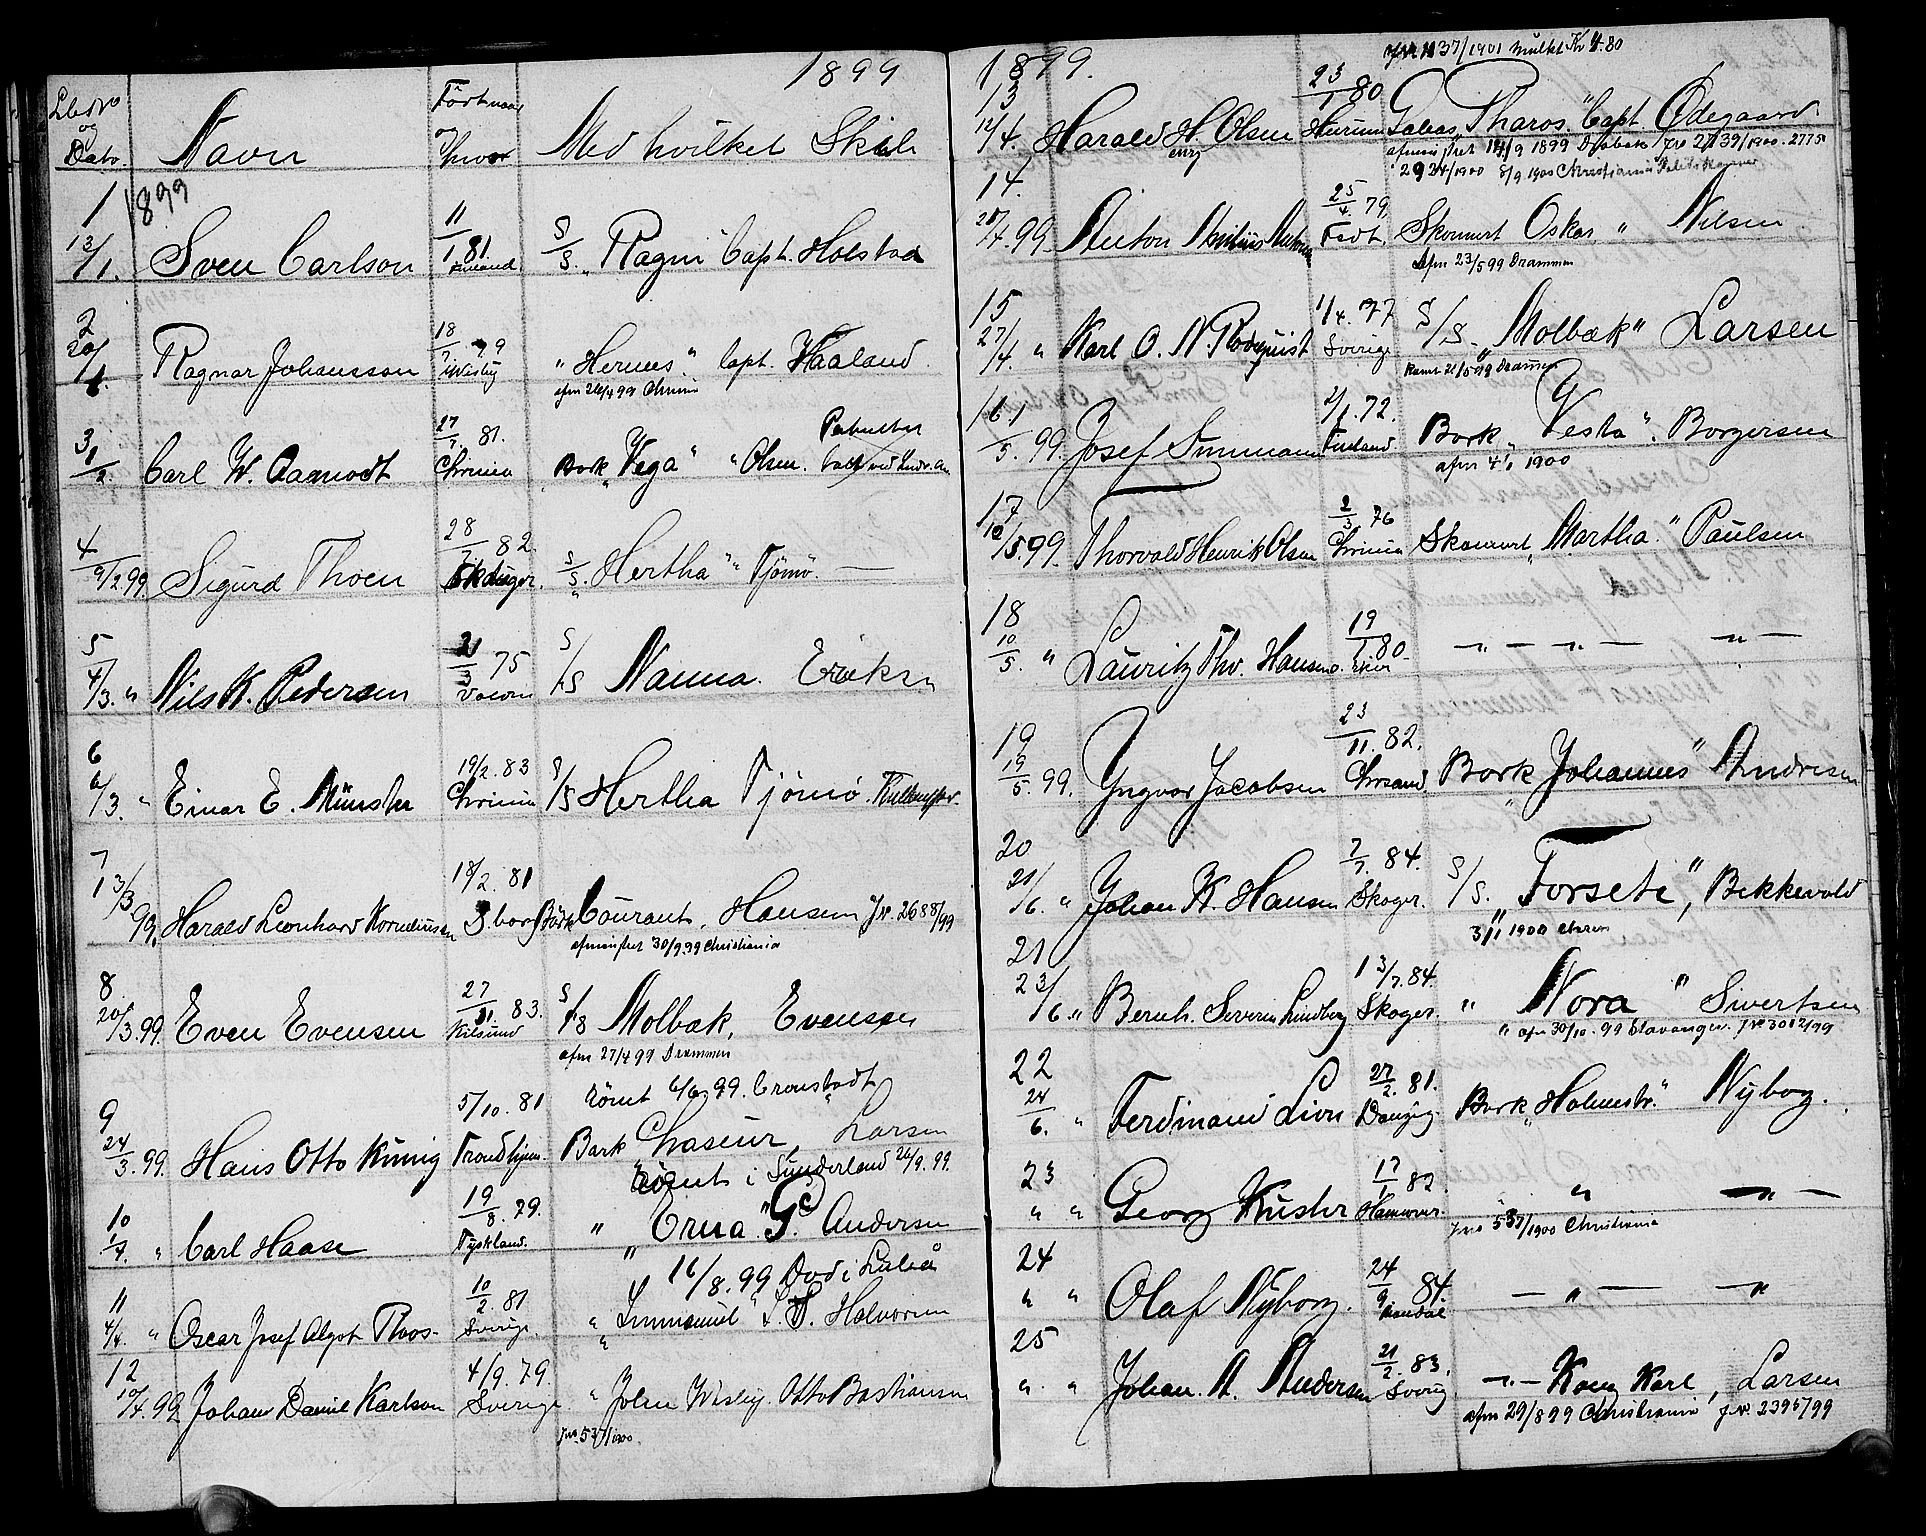 1899
Lbno og Dato. Navn Født naar og hvor Med hvilket Skib
1 1899
13/1. Sven Carlson 11/1 81. Finland S/S. „Ragni" Capt. Holstad
2
20/1. Ragnar Johansson 18/7 79 Wisby „Hermes". Capt. Haaland.
afm 26/4 99 Chrinia
3
1/2. Carl W. Aamodt 27/7. 81. Chrinia Bark „Vega" „ Olsen.
4
9/2.99. Sigurd Thoen 28/7 82. S/S. „Hertha" „ Tjömö. —
5
4/3. „ Nils K. Pedersen 21/3 75 S/S Nanna. Eriksen
6
6/3. „ Einar E. Münster 19/2. 83 Chrinia S/S Hertha Tjömö.
7
13/3 99. Harald Leonhard Korneliussen 18/2. 81 S.borg Bark Courant, Hansen J№. 2688/99
afmønstret 30/9.99 Christiania
8
20/3.99. Even Evensen 27/11. 83. Kilsund S/S Molbæk, Evensen
afm 27/4 99 Drammen
Römt 6/6 99. Cronstadt
9
24/3.99. Hans Otto König 5/10. 81 Trondhjem. Bark Chaseur, Larsen
Römt i Sunderland 26/9. 99.
10
1/4. „ Carl Haase 19/8. 79. Tyskland. „ „Erna" G. Andersen
16/8. 99 Död i Luleå
11
4/4 „ Oscar Josef Algot Thoos- 10/2. 81 Sverige. „ „Immanuel" L. Halvorsen
12
10/4.99 Johan Daniel Karlson 4/9. 79. Sverige „ John Wesley. Otto Bastiansen
Jno. 537/1900.
1899.
J№ 1137/1901 mulkt Kr 4.80
13
12/4. Harald Henry Olsen 23/1 80 Hurum Galeas „Tharos" Capt. Ødegaard.
afmønstret 14/9 1899 Drøbak Jno 2139/1900. 2775
2924/1900 8/9 1900 Christiania Politikammer
14.
20/4.99. Anton 25/4. 79 Fredr. Skonnert Oskar „ Nilsen
Afm 23/5 99 Drammen
15
27/4. „ Karl O. N. Rodquist 1/4. 77 Sverige S/S. „Molbæk" Larsen
16
1/5. 99. Josef Simmann 2/1. 72. Finland Bark „Vesta". Borgersen
afm 4/1 1900
17
10/5.99. Thorvald Henrik Olsen 2/3 76 Chrinia Skonnert „Martha." Paulsen
18
10/5. „ Lauritz Thv. Hansen. 19/1 80 — „ — „ — „ —
19
19/5. 99. Yngvar Jacobsen 23/11. 82. Chrsand Bark „Johannes" Andresen
20
21/6. „ Johan K. Hansen 7/7. 84. Skoger. S/S. „Forsete", Bekkevold
3/1 1900 Chrin
21
23/6. „ Bernh. Severin Lindberg 13/7.84. Skoger. „ Nora " Sivertsen
„ afm 30/10. 99 Stavanger. J№ 3012/99
22
24/6. „ Ferdinand Lion 27/2. 81. Danzig Bark „Holmestr." Nyborg.
23
„ „ Georg Küster 17/1 82. Hannover. „ — „ —
Jno 537/1900 Christiania
24
„ „ Olaf Nyborg. 24/9 84. — „ — — „
25
„. „ Johan. A. Andersen 21/2. 83. Sverig — „ — Kong Karl, Larsen
afm 29/8 99 Christiania J№. 2395/99